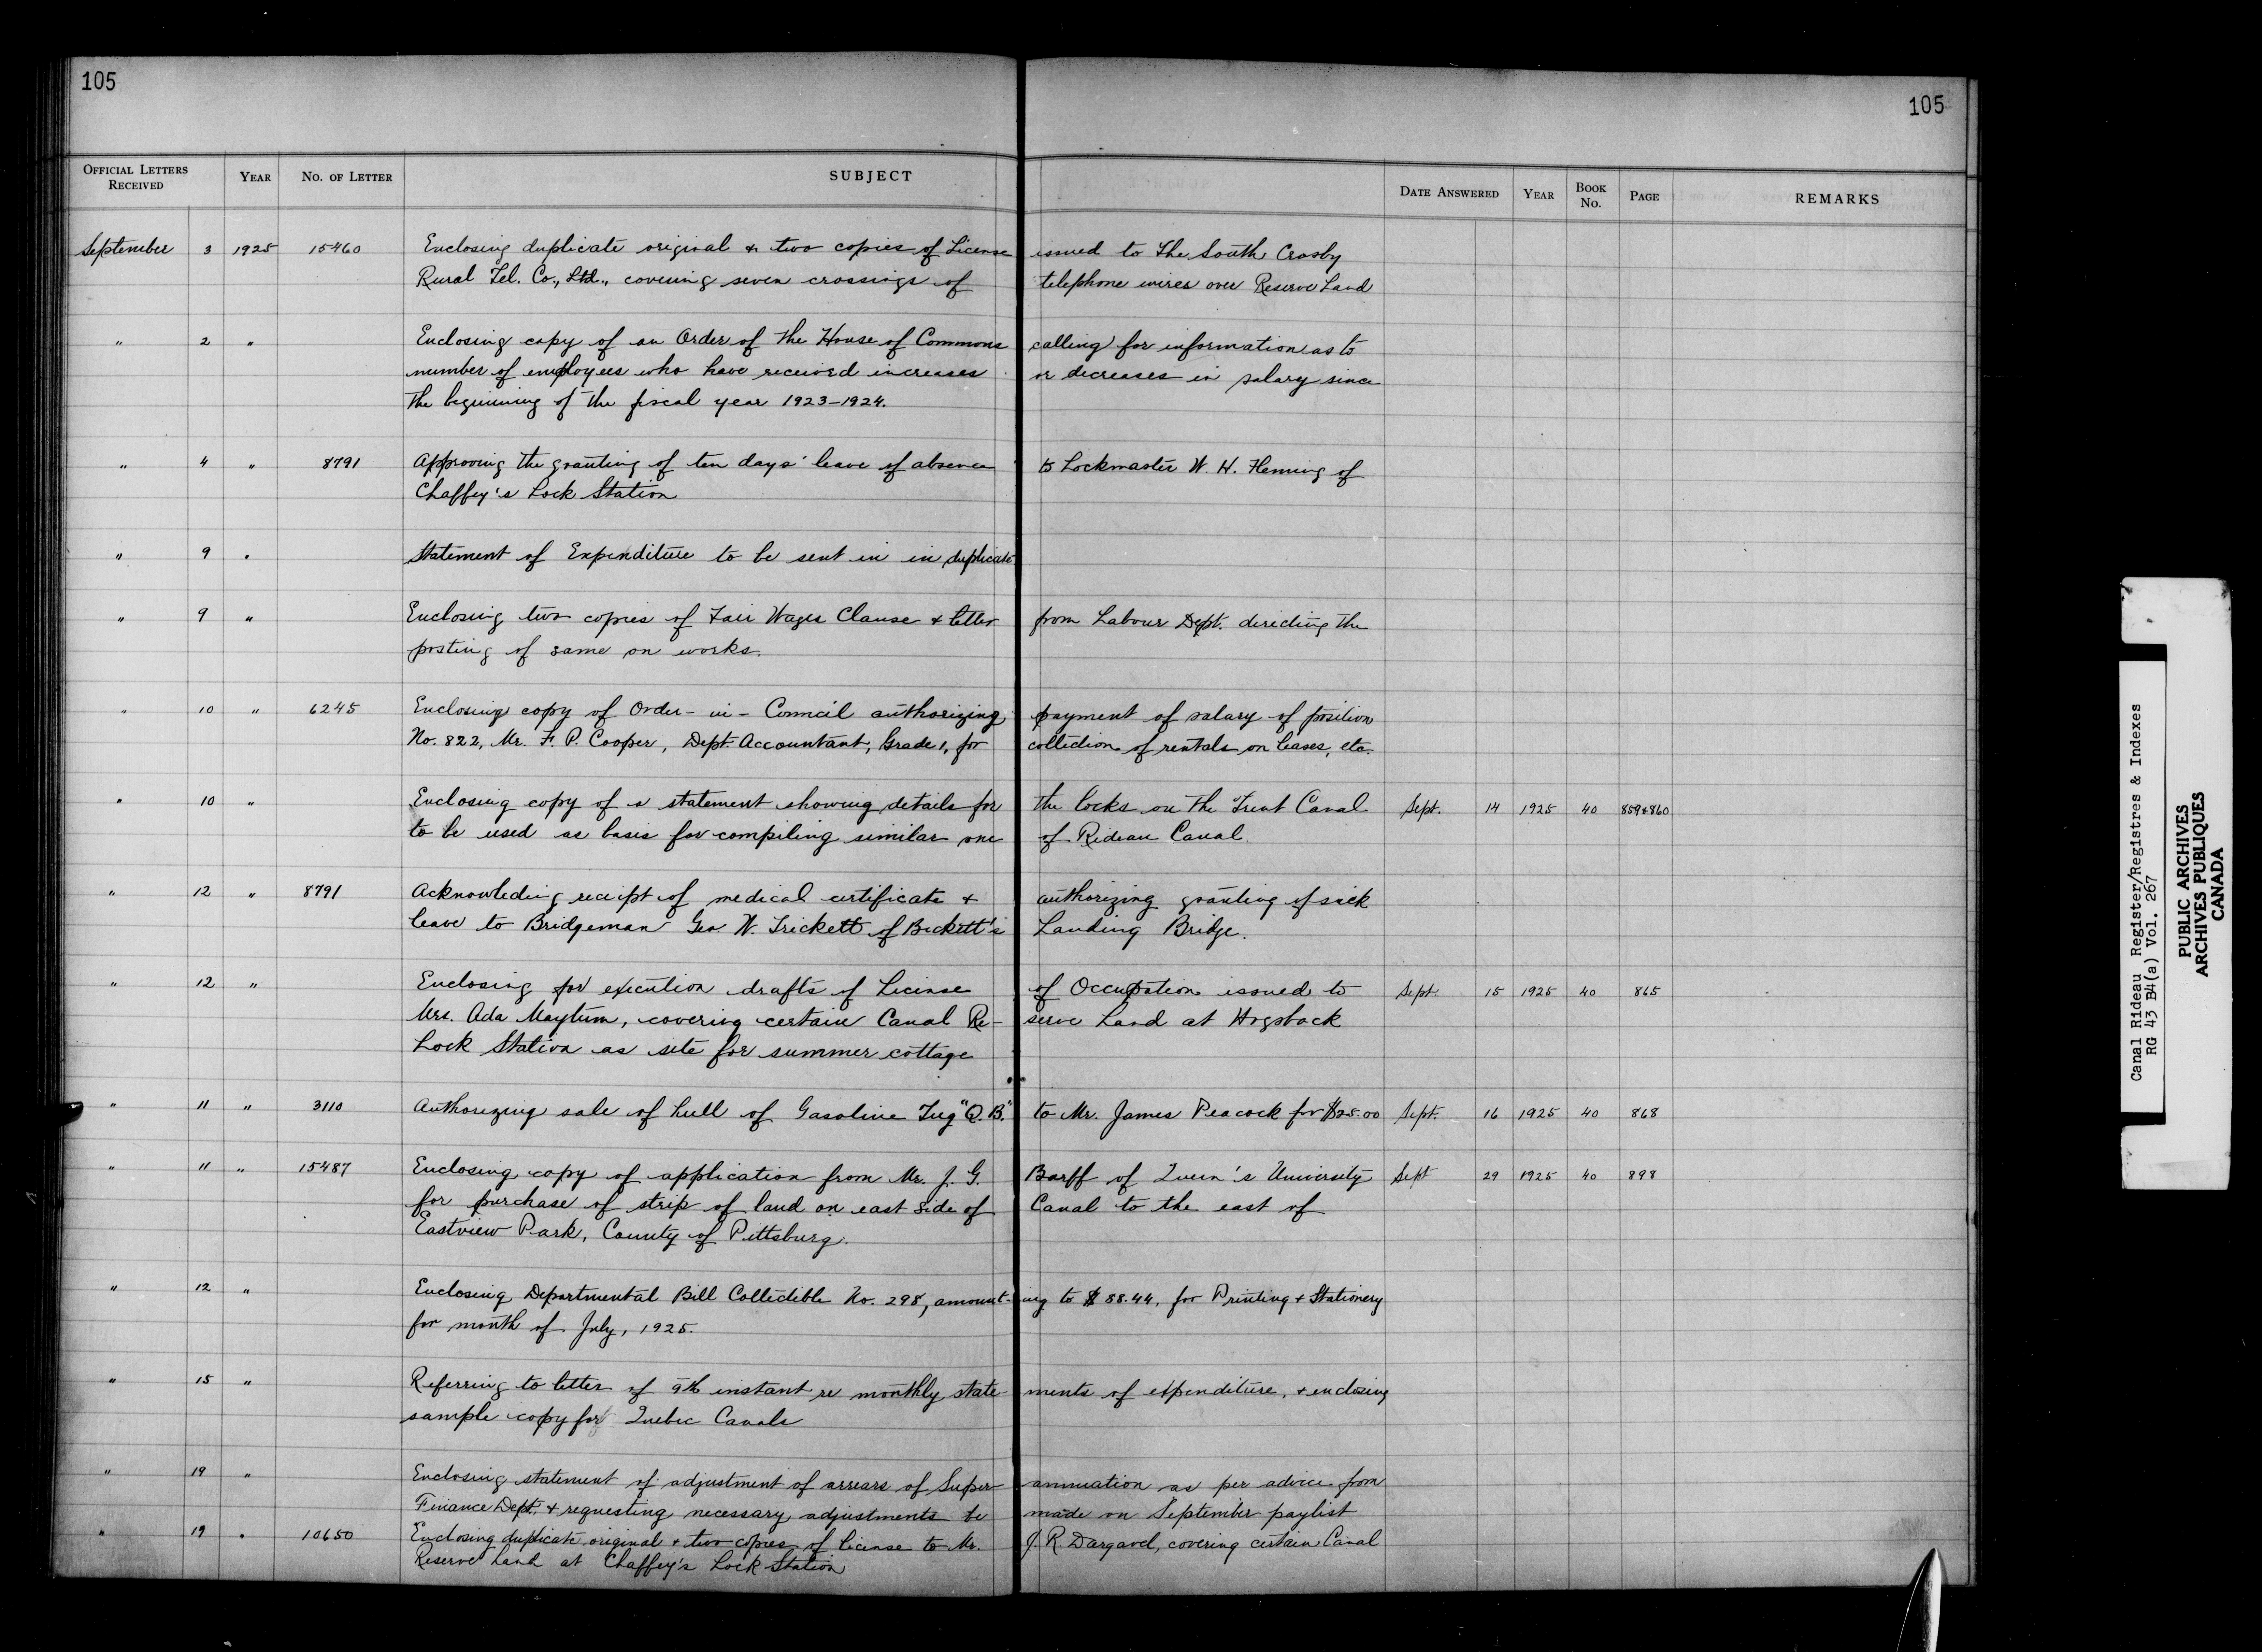 105
105
OFFICIAL LETTERS RECEIVED YEAR NO. OF LETTER SUBJECT DATE ANSWERED YEAR BOOK NO. PAGE REMARKS
September 3 1925 15460 Enclosing duplicate original & two copies of License issued to The South Crosby
Rural Tel. Co., Ltd., covering seven crossings of telephone wires over Reserve Land
" 2 " Enclosing copy of an Order of the House of Commons calling for information as to
number of employees who have received increases or decreases in salary since
the beginning of the fiscal year 1923-1924.
" 4 " 8791 Approving the granting of ten days' leave of absence to Lockmaster W. H. Fleming of
Chaffey's Lock Station
" 9 " Statement of Expenditure to be sent in in duplicate
" 9 " Enclosing two copies of Fair Wages Clause & letter from Labour Dept. directing the
posting of same on works.
" 10 " 6245 Enclosing copy of Order-in-Council authorizing payment of salary of position
No. 822, Mr. F. P. Cooper, Dept. Accountant, Grade 1, for collection of rentals on leases, etc.
" 10 " Enclosing copy of a statement showing details for the locks on the Trent Canal Sept. 14 1925 40 859&860
to be used as basis for compiling similar one of Rideau Canal.
" 12 " 8791 Acknowleding receipt of medical certificate & authorizing granting of sick
leave to Bridgeman Geo. W. Trickett of Beckett's Landing Bridge.
" 12 " Enclosing for execution drafts of License of Occupation issued to Sept. 15 1925 40 865
Mrs. Ada Maytum, covering certain Canal Re- serve Land at Hogsback
Lock Station as site for summer cottage
" 11 " 3110 Authorizing sale of hull of Gasoline Tug "Q.B." to Mr. James Peacock for $25.00 Sept. 16 1925 40 868
" 11 " 15487 Enclosing copy of application from Mr. J. G. Barff of Queen's University Sept 29 1925 40 898
for purchase of strip of land on east side of Canal to the east of
Eastview Park, County of Pittsburg.
" 12 " Enclosing Departmental Bill Collectible No. 298, amount- ing to $88.44, for Printing & Stationery
for month of July, 1925.
" 15 " Referring to letter of 9th instant re monthly state ments of expenditure, & enclosing
sample copy for Quebec Canals
" 19 " Enclosing statement of adjustment of arrears of Super- annuation as per advice from
Finance Dept. & requesting necessary adjustments be made on September paylist
" 19 " 10650 Enclosing duplicate original & two copies of license to Mr. J. R. Dargavel, covering certain Canal
Reserve Land at Chaffey's Lock Station
Canal Rideau Register/Registres & Indexes
RG 43 B4(a) Vol. 267
PUBLIC ARCHIVES
ARCHIVES PUBLIQUES
CANADA